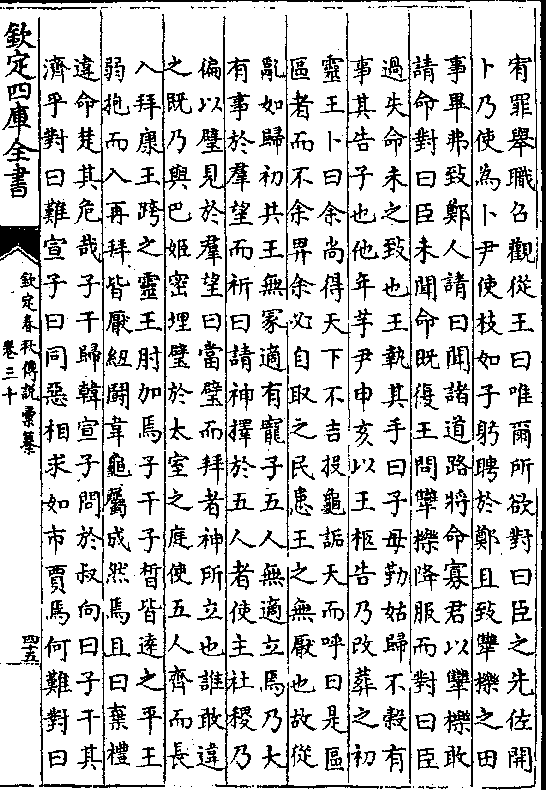 宥罪舉職召觀從王曰唯爾所欲對曰臣之先佐開
卜乃使為卜尹使枝如子躬聘於鄭且致犨櫟之田
事畢弗致鄭人請曰聞諸道路將命寡君以犨櫟敢
請命對曰臣未聞命既復王問犨櫟降服而對曰臣
過失命未之致也王執其手曰子毋勤姑歸不榖有
事其告子也他年芋尹申亥以王柩告乃改葬之初
靈王卜曰余尚得天下不吉投龜詬天而呼曰是區
區者而不余畀余必自取之民患王之無厭也故從
亂如歸初共王無冢適有寵子五人無適立焉乃大
有事於羣望而祈曰請神擇於五人者使主社稷乃
徧以璧見於羣望曰當璧而拜者神所立也誰敢違
之既乃與巴姬密埋璧於太室之庭使五人齊而長
入拜康王跨之靈王肘加焉子干子晳皆遠之平王
弱抱而入再拜皆厭紐鬬韋龜屬成然焉且曰棄禮
違命楚其危哉子干歸韓宣子問於叔向曰子干其
濟乎對曰難宣子曰同惡相求如市賈焉何難對曰
欽定四庫全書
欽定春秋傳說彙纂
卷三十
四五